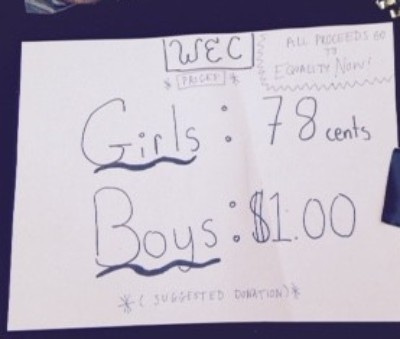 WEC
* PRICES *
ALL PROCEEDS GO
TO
EQUALITY Now!
Girls: 78 cents
Boys: $1.00
*(SUGGESTED DONATION)*